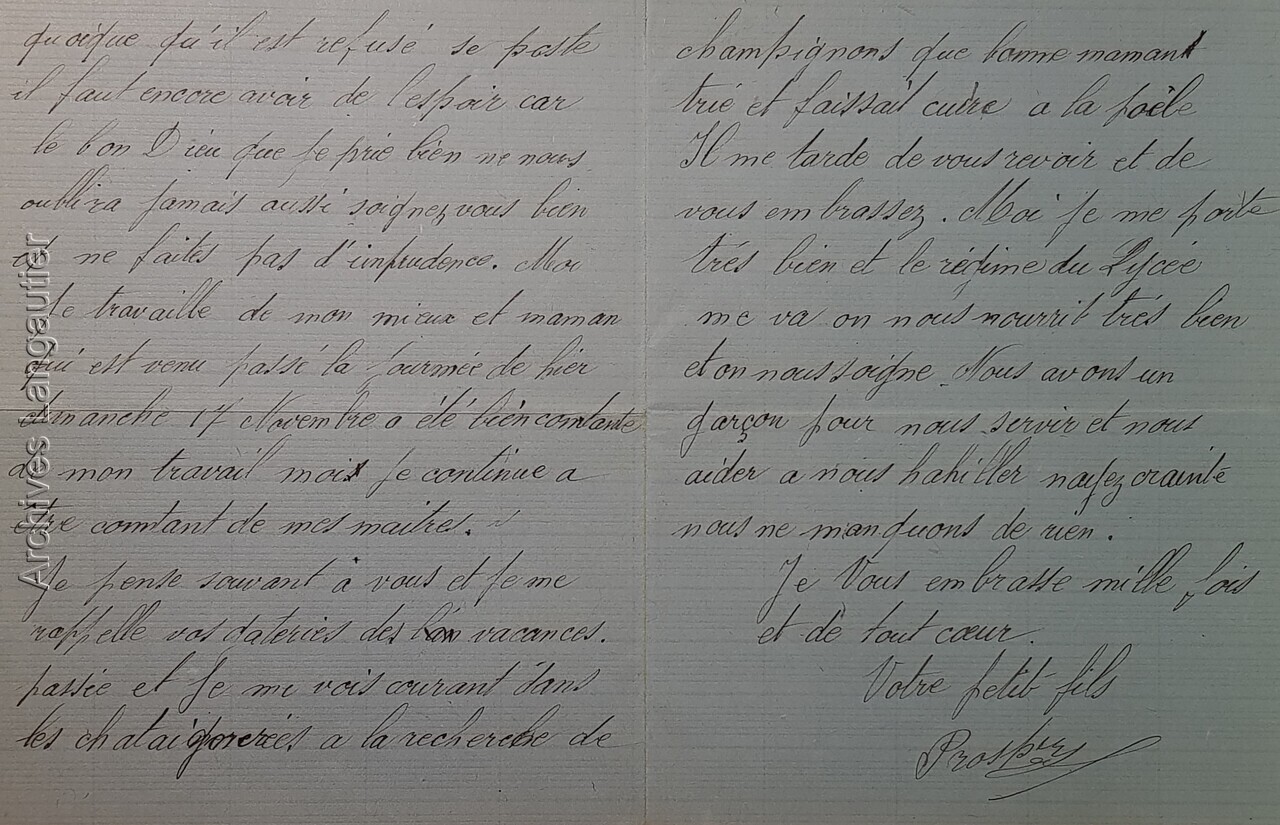 quoique qu'il est refusé se poste
il faut encore avoir de l'espoir car
le bon Dieu que je prie bien ne nous
oublira jamais aussi soignez vous bien
et ne faites pas d'imprudence. Moi
je travaille de mon mieux et maman
qui est venu passé la journée de hier
dimanche 17 Novembre a été bien contante
de mon travail mois je continue a
être contant de mes maitres.
Je pense souvant à vous et je me
rappelle vos gateries des vacances.
passée et je me vois courant dans
les chataigneraies a la recherche de
champignons que bonne maman
trié et faissait cuire a la poële
Il me tarde de vous revoir et de
vous embrassez. Moi je me porte
trés bien et le régime du Lycée
me va on nous nourrit trés bien
et on nous soigne. Nous avons un
garçon pour nous servir et nous
aider a nous habiller nayez crainte
nous ne manquons de rien.
Je Vous embrasse mille fois
et de tout cœur.
Votre petit fils
Prosper
Archives Langautier